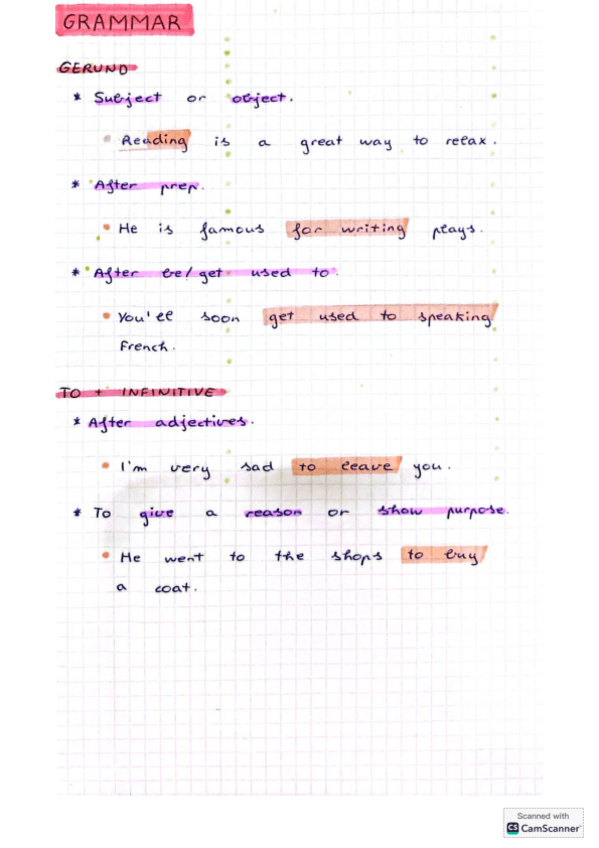 GRAMMAR
GERUND
* Subject or object.
• Reading is a great way to relax.
* After prep.
• He is famous for writing plays.
* After be/get used to.
• You'll soon get used to speaking
French.
TO + INFINITIVE
* After adjectives.
• I'm very sad to leave you.
* To give a reason or show purpose.
• He went to the shops to buy
a coat.
Scanned with
CS CamScanner